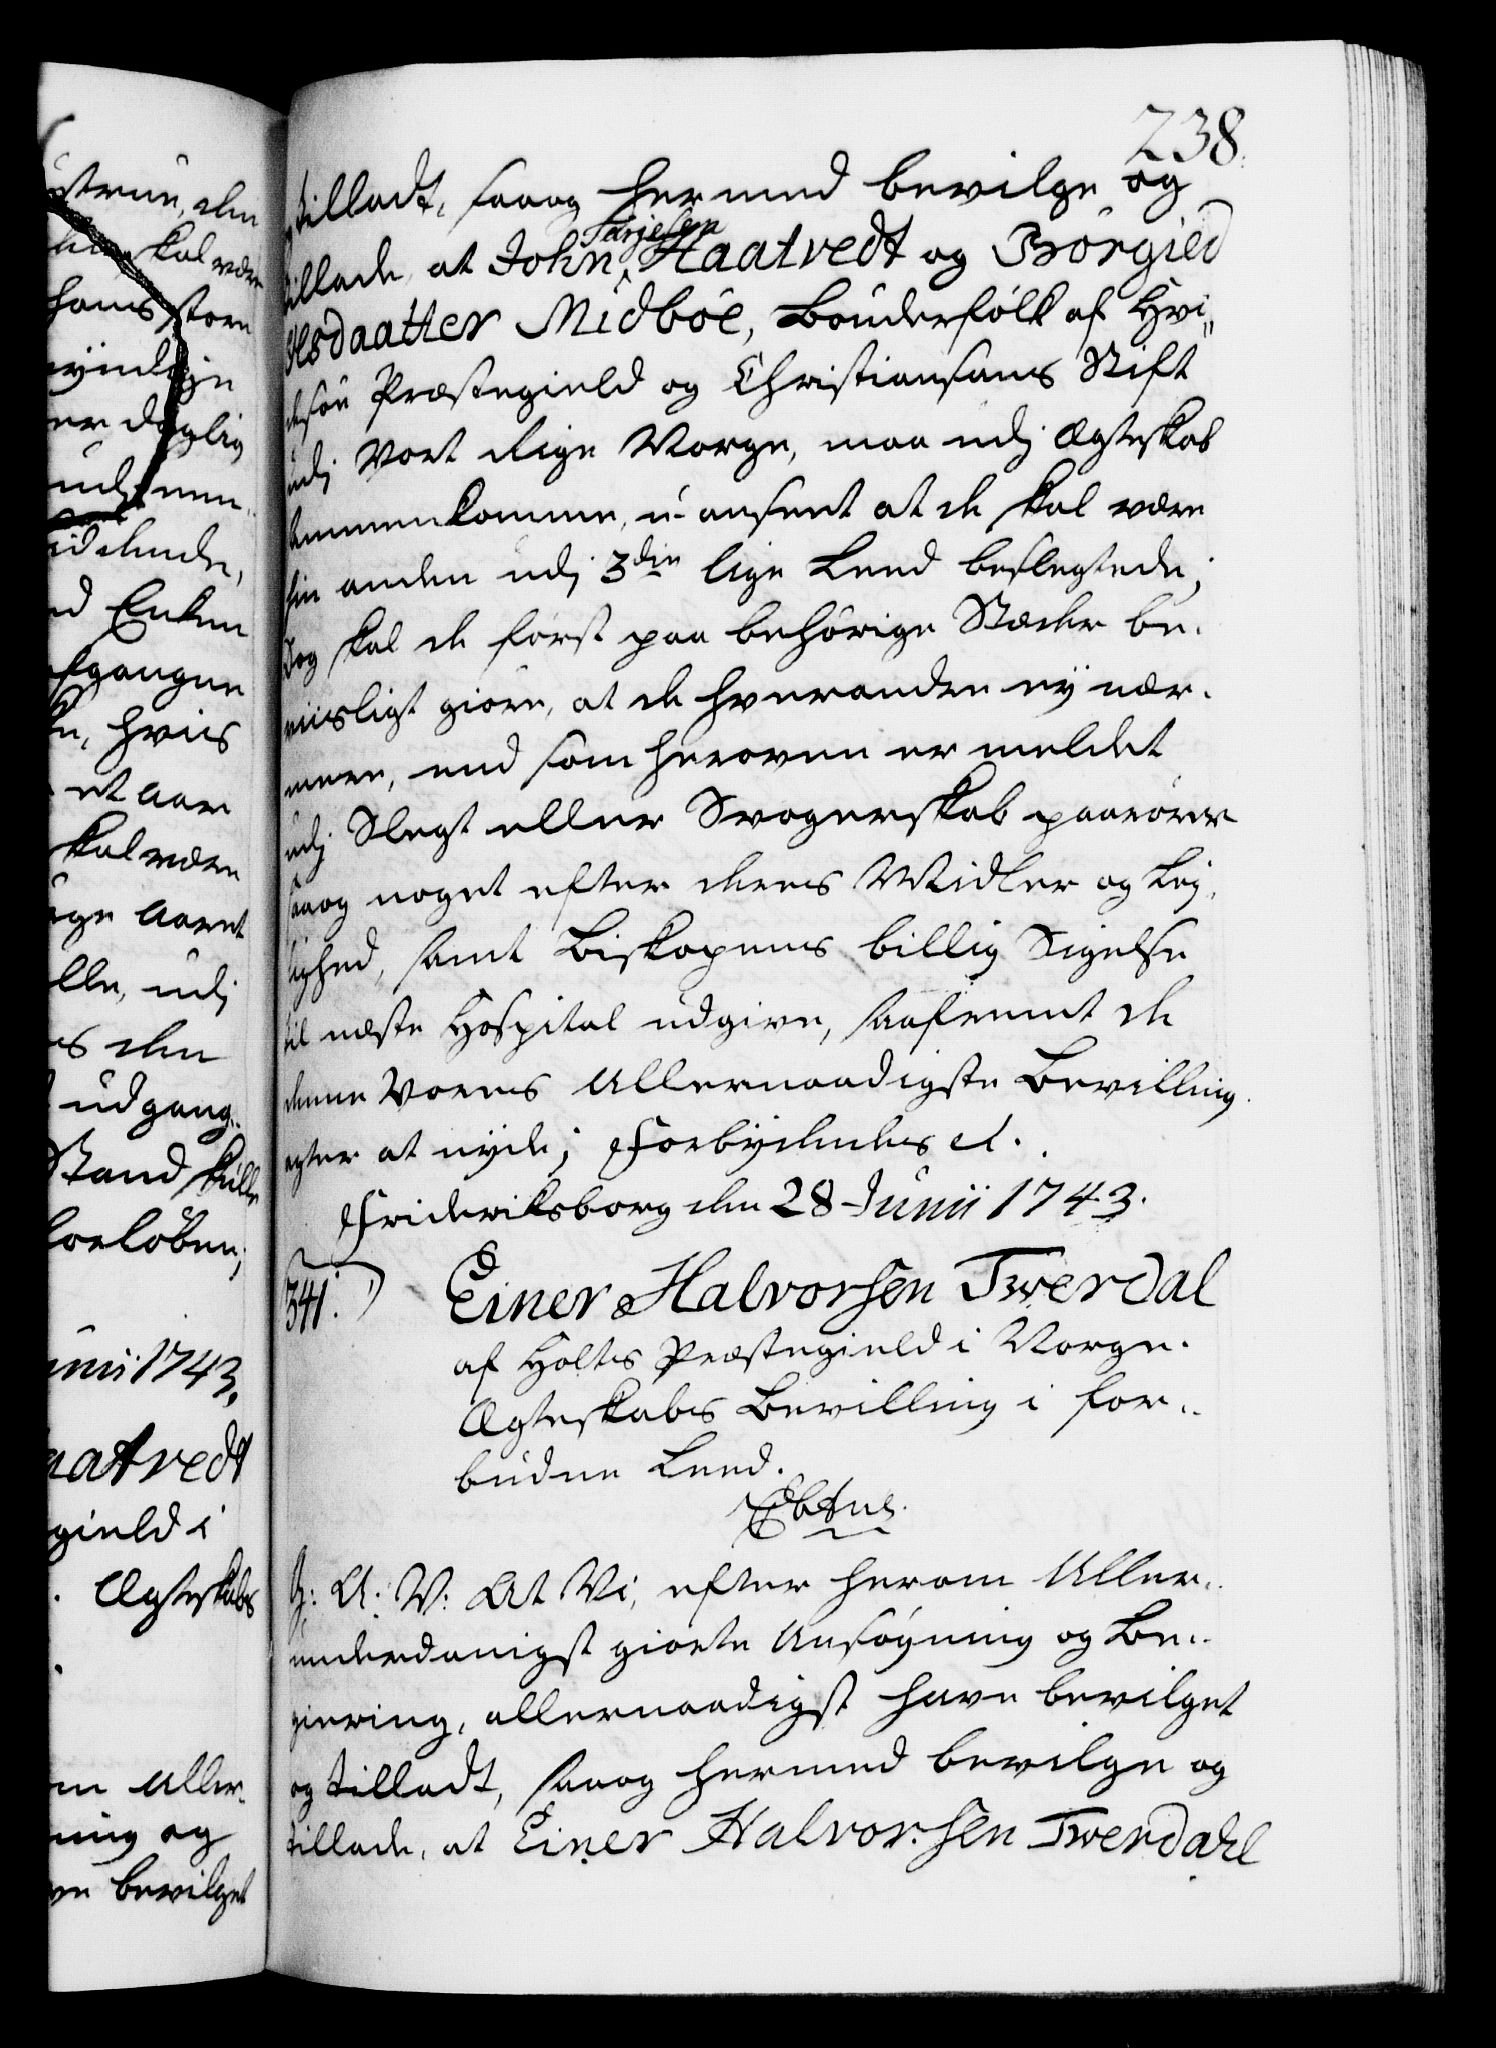 ustrue, den
skal være
hans store
øyinlige
er daglig
udj nem¬
id dends,
ed Enken
afgangne
n, hviis
et aar
skal være
ige aaret
lle, udj
s den
udgang¬
Stand skulle
forløben;
unii 1743.
aatvedt
gield i
Ægteskabs
m aller¬
ning og
ve bevilget
238.
tilladt, saa og hermed bevilge og
tillade, at John Tarjesen Haatvedt og Borgied
Olsdaatter Midböe, Bønderfolk af Hvi¬
desöe Præstegield og Christiansans Stift
udj Vort Rige Norge, maa udj Ægteskab
sammenkomme, u-anseet at de skal være
hin anden udj 3die lige Leed beslegtede;
Dog skal de først paa behörige Stæder be¬
viisligt giöre, at de hverandre ey nær¬
mere, end som heroven er meldet
udj Slegt eller Svogerskab paarörer
saa og noget efter deres Midler og Ley¬
lighed, samt Biskopens billig Sigelse
til næste Hospital udgive, saafremt de
denne Vores Allernaadigste Bevilling
agter at nyde; Forbydendes et.
Frideriksborg den 28 Junii 1743.
341.) Einer Halvorsen Twerdal
af Holtes Præstegield i Norge.
Ægteskabs Bevilling i for¬
budne Leed.
Ebtus.
G: A: V: At Vi, efter herom Aller¬
underdanigst giorte Ansögning og Be¬
giering, allernaadigst have bevilget
og tilladt, saa og hermed bevilge og
tillade, at Einer Halvorsen Twerdahl